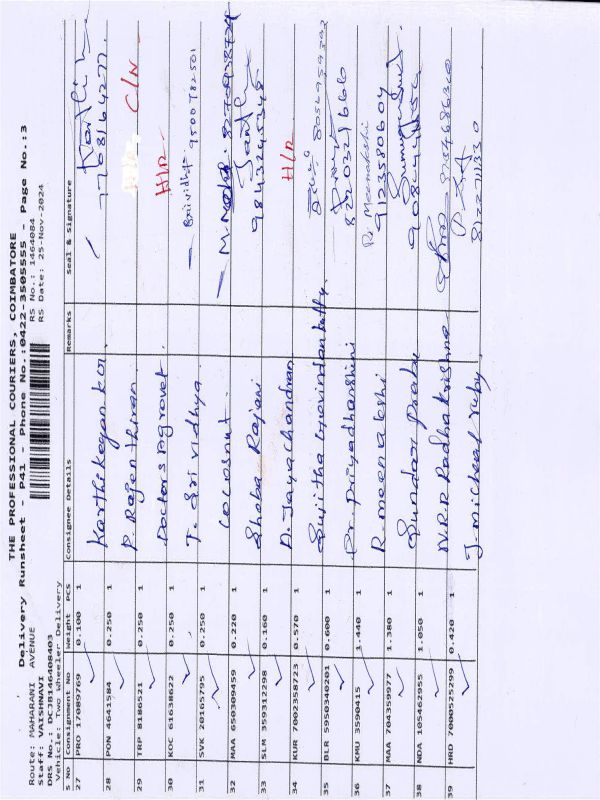 THE PROFESSIONAL COURIERS, COIMBATORE
Delivery Runsheet - P41 - Phone No.:0422-3505555 - Page No.:3
Route: MAHARANI AVENUE
Staff: VAISHNAVI
RS No.: 1464084
DRS No.: DCJB146408403
RS Date: 25-Nov-2024
Vehicle: Two Wheeler Delivery
S No Consignment No Weight PCS Consignee Details Remarks Seal & Signature
27 PRO 17089769 0.100 1 Karthikeyan kor Karthik
7708164277
28 PON 4641584 0.250 1 P. Rajenthiran C/N
29 TRP 8186521 0.250 1 Doctors Agrovet H/R
30 KOC 61638622 0.250 1 T. Sri vidhya Srividhya 9500782501
31 SVK 20165795 0.250 1 Coconut
32 MAA 650309459 0.220 1 Shoba Rajani 9843245348
33 SLM 359312298 0.160 1 A. Jayachandran H/R
34 KUR 7002358723 0.570 1 Sujitha 8056959392
35 BLR 5950340201 0.600 1 Dr. Priyadharshini 8220321666
36 KMU 3590415 1.440 1 R. meenakshi R. Meenakshi
9123580604
37 MAA 704359977 1.380 1 Sundar Prabu
38 NDA 105462955 1.050 1 N.R.R Radha krishna
39 HRD 7000525299 0.420 1 J. micheal ruby